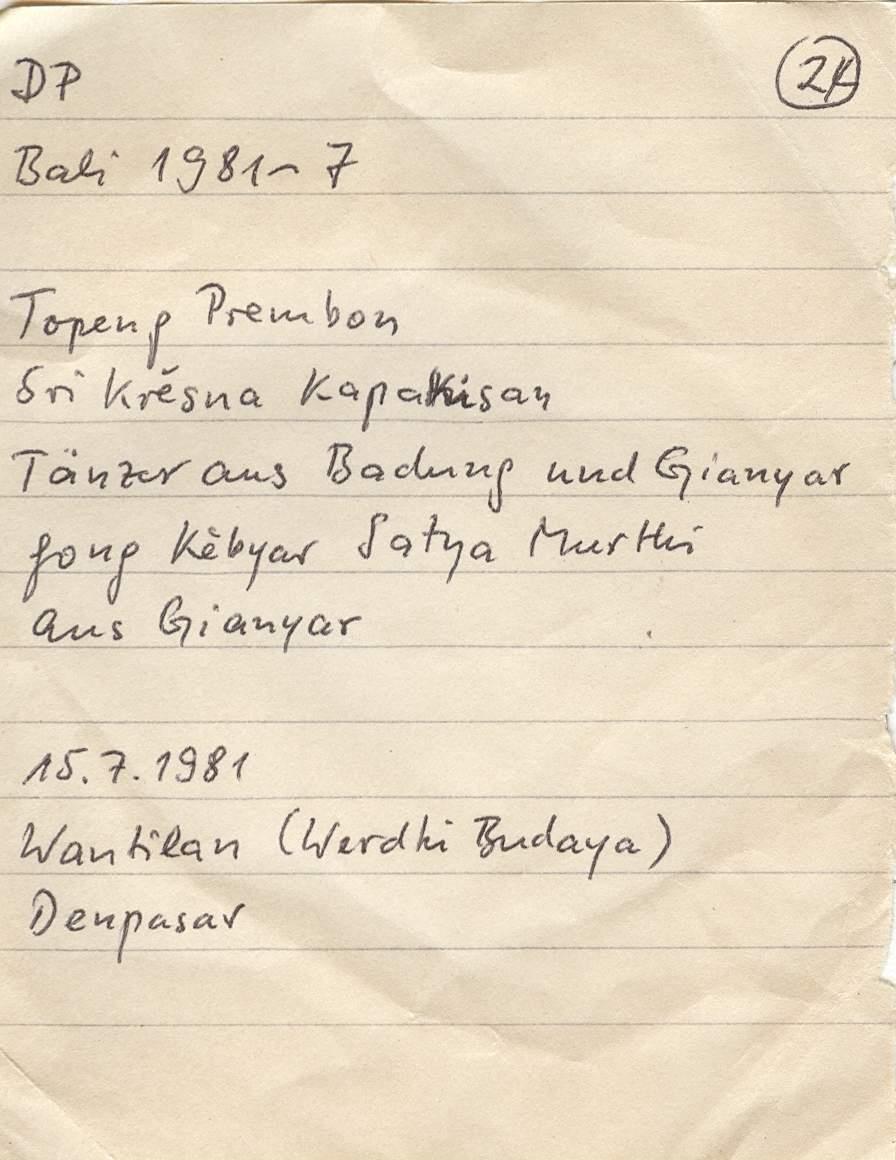 DP
24
Bali 1981-7
Topeng Prembon
Sri Krĕsna Kapakisan
Tänzer aus Badung und Gianyar
gong Kĕbyar Satya Murthi
aus Gianyar
15.7.1981
Wantilan (Werdhi Budaya)
Denpasar